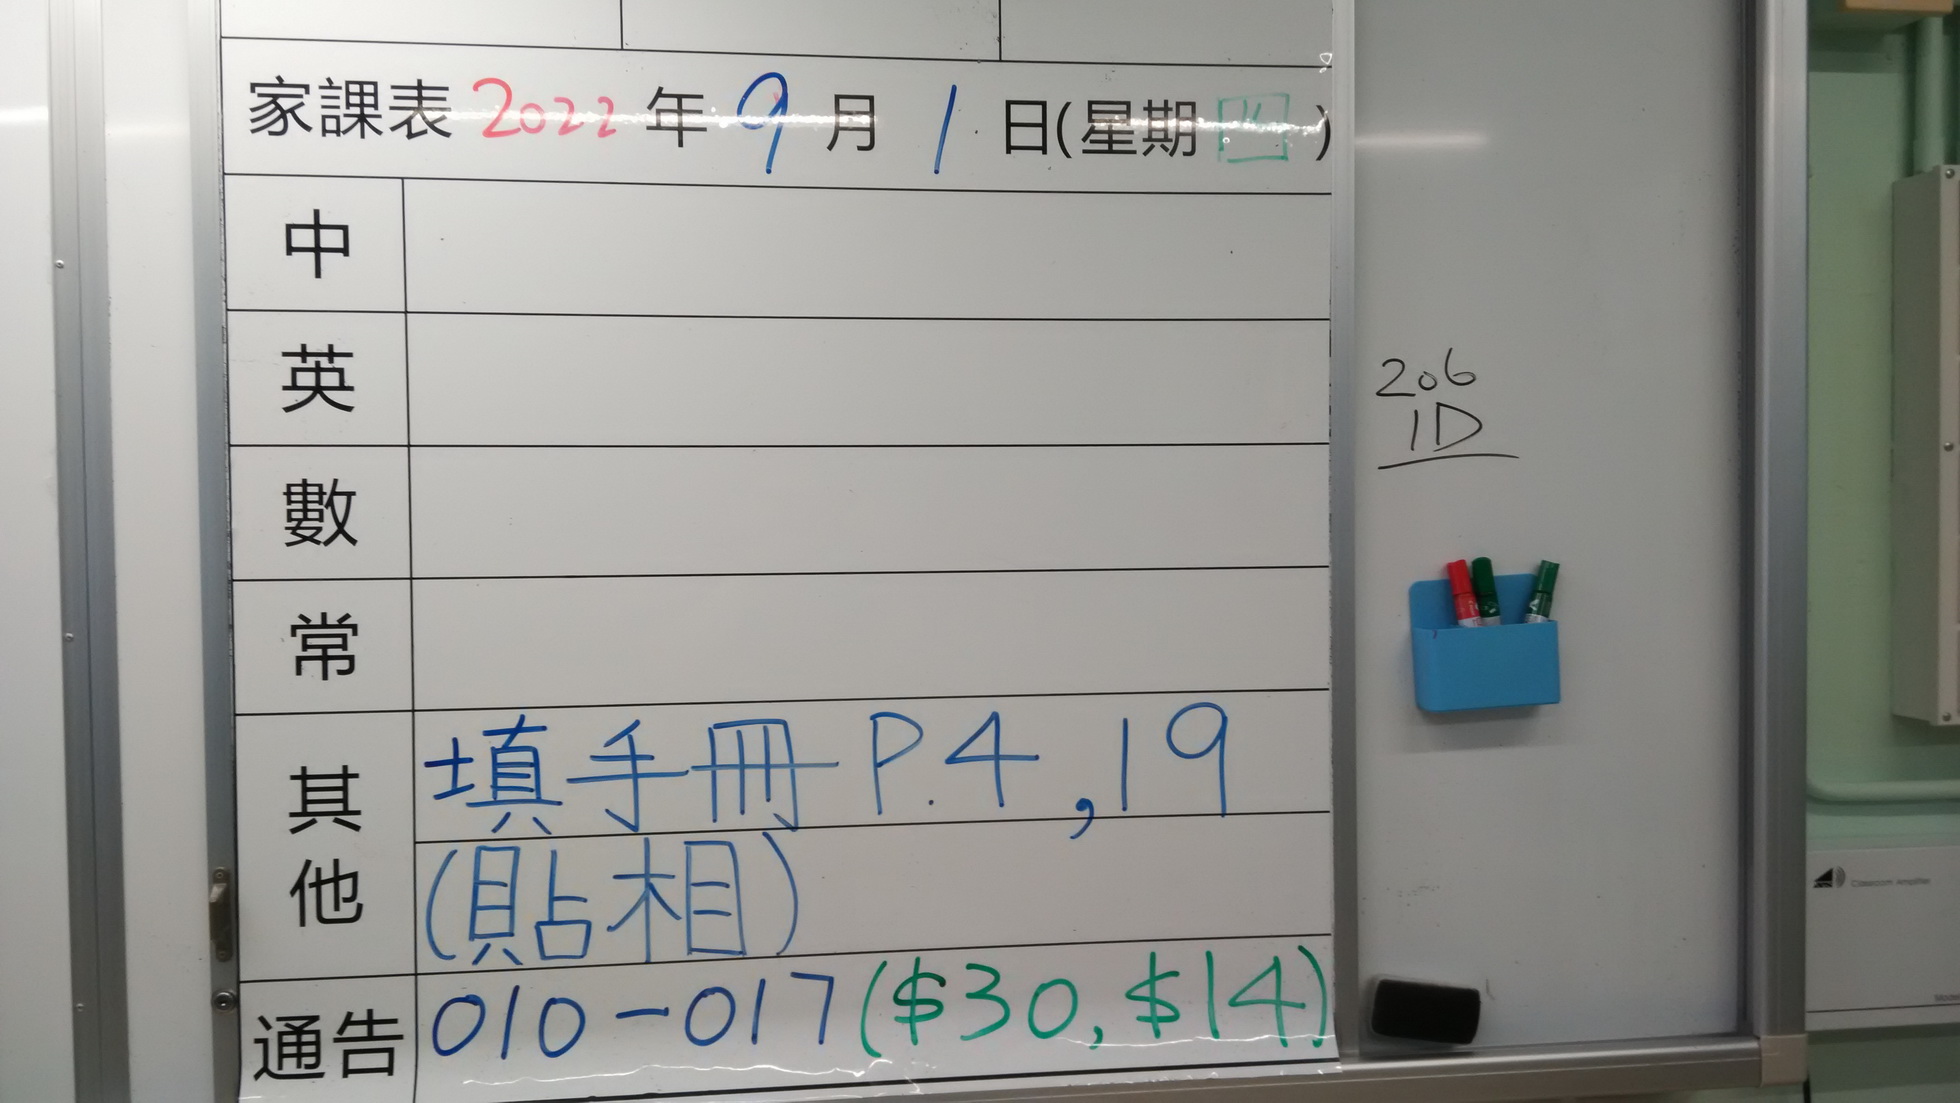 家課表 2022 年 9 月 1 日(星期四)
中
英
數
常
其他
填手冊 P.4,19
(貼相)
通告 010-017($30,$14)
206
1D
Classroom Amplifier